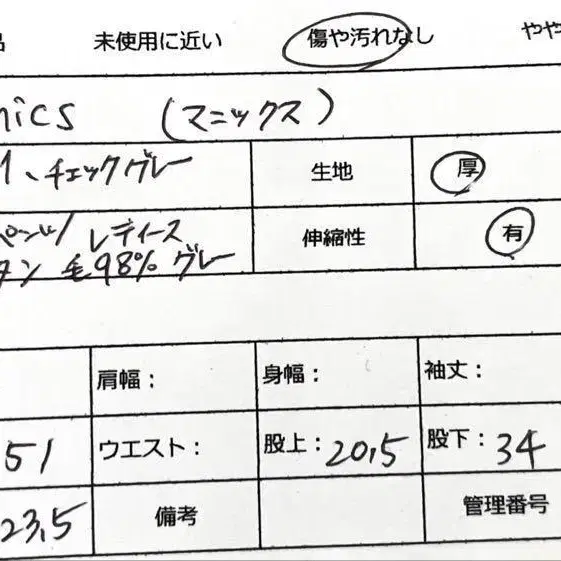 品 未使用に近い 傷や汚れなし やや
nics (マニックス)
、チェックグレー 生地 厚
パンツ/レディース 伸縮性 有
タン 毛98% グレー
肩幅： 身幅： 袖丈：
51 ウエスト： 股上：20,5 股下：34
23,5 備考 管理番号